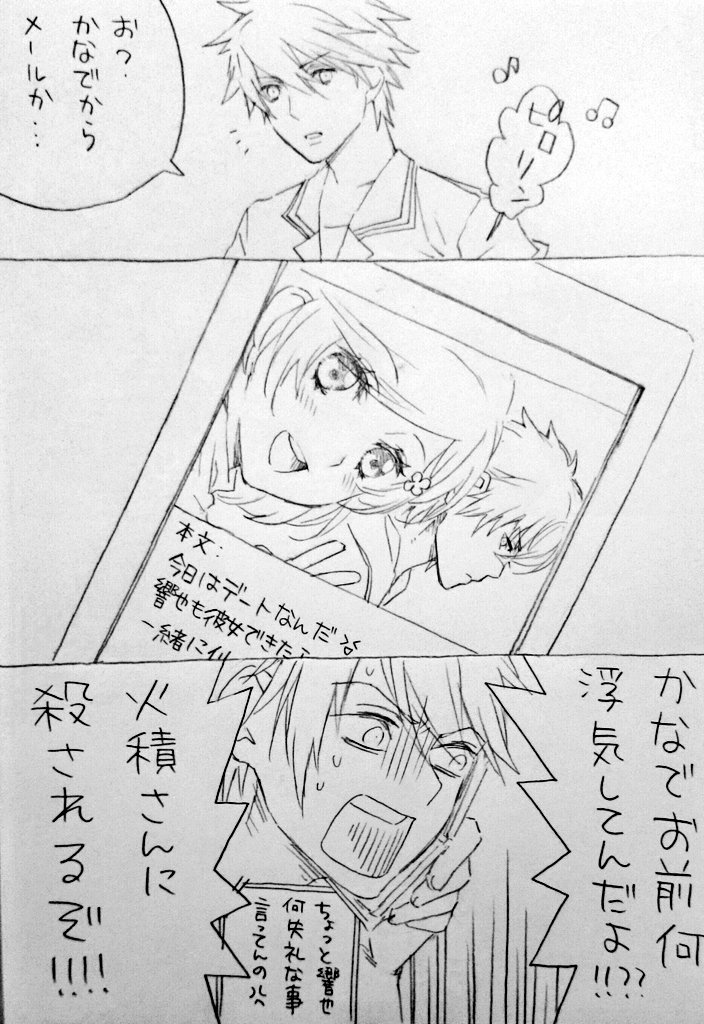 おっ、
かなでから
メールか…
ピロリン
本文:
今日はデートなんだ
響也も彼女できたら
一緒に行
かなでお前何
浮気してんだよ!!??
火積さんに
殺されるぞ!!!!
ちょっと響也
何失礼な事
言ってんの